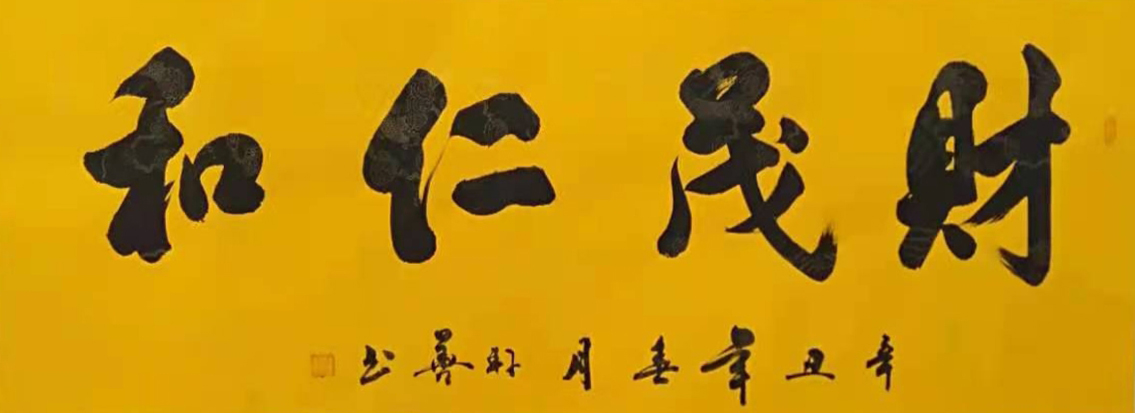 財茂仁和
辛丑年春月 善书